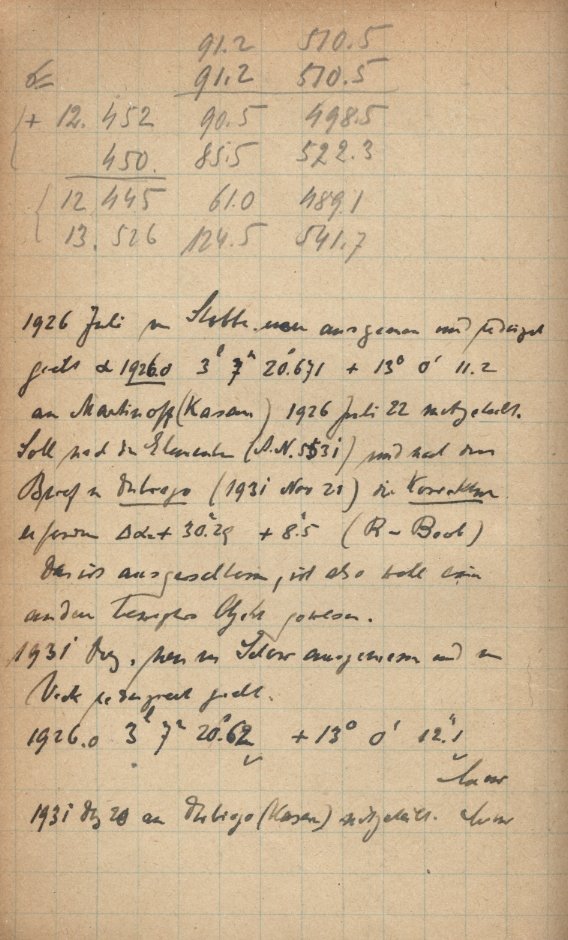 91.2 510.5
α= 91.2 510.5
+ 12. 452 90.5 498.5
450. 85.5 522.3
12 445 61.0 489.1
13. 526 124.5 541.7
1926 Juli von Stobbe ausgemessen und reduziert
giebt α 1926.0 3h 7m 20s.671 + 13° 0' 11.2
an Martinoff (Kasan) 1926 Juli 22 mitgeteilt.
Soll nach den Elementen (A.N. 5531) und nach dem
Brief v Dubiago (1931 Nov 21) die Korrektion
erfahren Δα=+ 30".29 + 8".5 (R - Beob)
Das ist ausgeschlossen, ist also wohl ein
anderes Objekt gewesen.
1931 Dez. neu von ausgemessen und von
reduziert giebt.
1926.0 3h 7m 20s.62 + 13° 0' 12".1
1931 Dez 20 an Dubiago (Kasan) mitgeteilt.